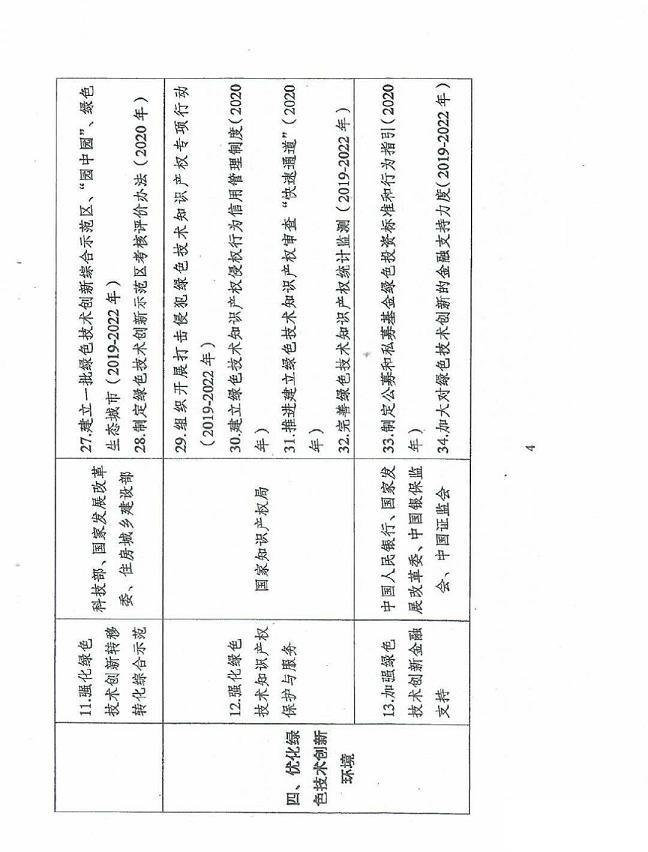 11.强化绿色
技术创新转移
转化综合示范
科技部、国家发展改革
委、住房城乡建设部
27.建立一批绿色技术创新综合示范区、“园中园”、绿色
生态城市（2019-2022年）
28.制定绿色技术创新示范区考核评价办法（2020年）
四、优化绿
色技术创新
环境
12.强化绿色
技术知识产权
保护与服务
国家知识产权局
29.组织开展打击侵犯绿色技术知识产权专项行动
（2019-2022年）
30.建立绿色技术知识产权侵权行为信用管理制度（2020
年）
31.推进建立绿色技术知识产权审查“快速通道”（2020
年）
32.完善绿色技术知识产权统计监测（2019-2022年）
13.加强绿色
技术创新金融
支持
中国人民银行、国家发
展改革委、中国银保监
会、中国证监会
33.制定公募和私募基金绿色投资标准和行为指引（2020
年）
34.加大对绿色技术创新的金融支持力度（2019-2022年）
4